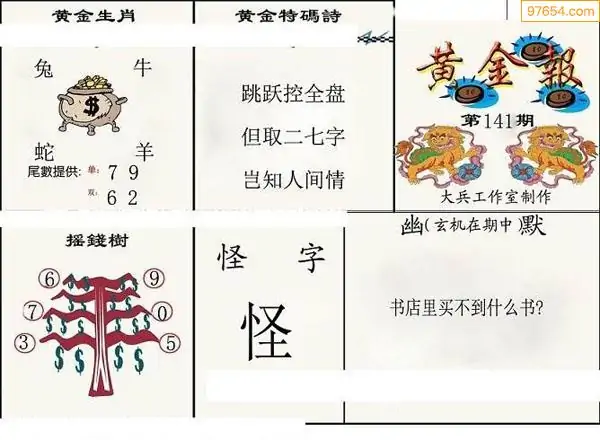 97654.com
黄金生肖
兔 牛
$
蛇 羊
尾數提供: 单: 7 9
双: 6 2
黄金特碼詩
跳跃控全盘
但取二七字
岂知人间情
黄金報
第141期
大兵工作室制作
摇錢樹
6 9
7 0
3 5
怪 字
怪
幽(玄机在期中)默
书店里买不到什么书?